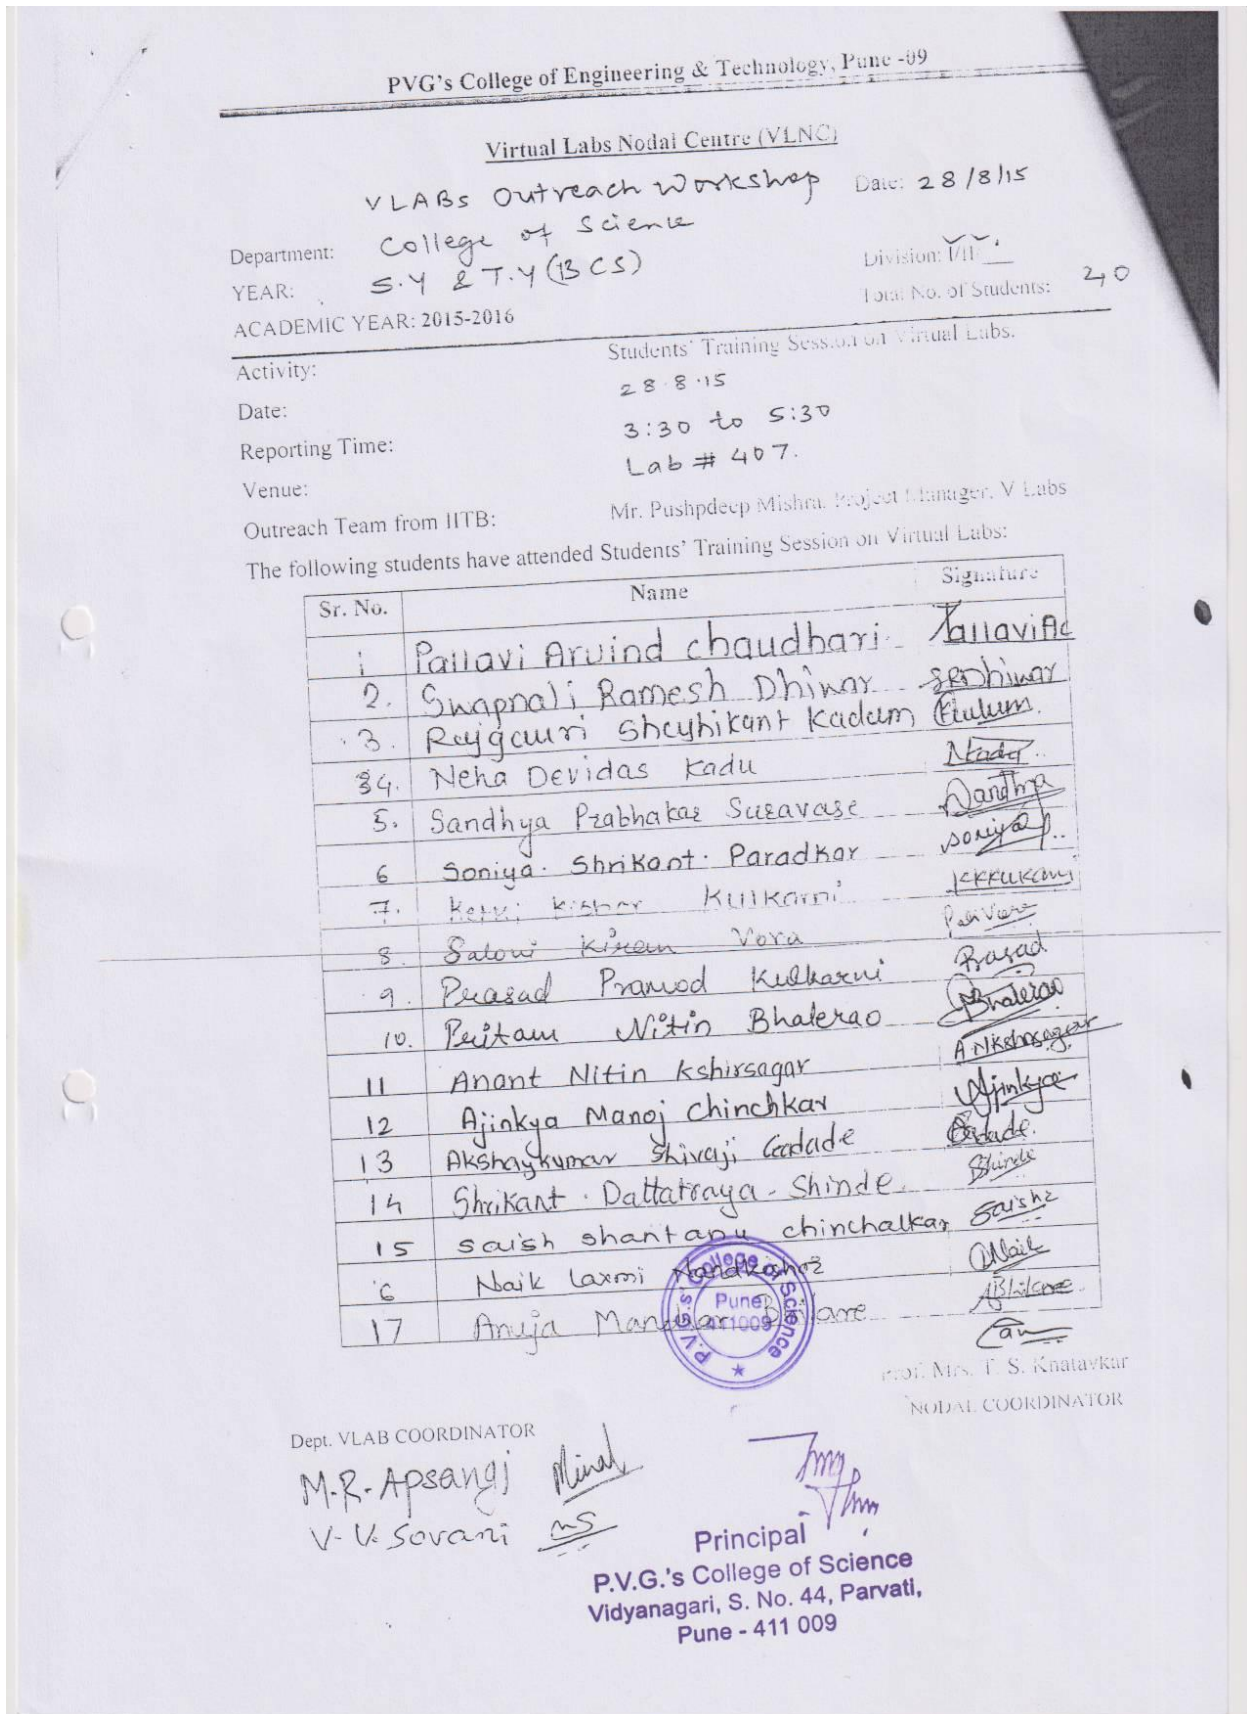 PVG's College of Engineering & Technology, Pune -09
Virtual Labs Nodal Centre (VLNC)
VLABs Outreach Workshop Date: 28/8/15
Department: College of Science
YEAR: S.Y & T.Y (BCS) Division: I/II
ACADEMIC YEAR: 2015-2016 Total No. of Students: 40
Activity: Students' Training Session on Virtual Labs.
Date: 28.8.15
Reporting Time: 3:30 to 5:30
Venue: Lab # 407.
Outreach Team from IITB: Mr. Pushpdeep Mishra, Project Manager, V Labs
The following students have attended Students' Training Session on Virtual Labs:
Sr. No. Name Signature
1 Pallavi Arvind chaudhari
2. Swapnali Ramesh Dhiwar SRDhiwar
3. Rajgauri Shashikant Kadam
4. Neha Devidas Kadu
5. Sandhya Prabhakar Suravase Sandhya
6 Soniya. Shrikant. Paradkar
7. Ketki Kishor Kulkarni KKKulkarni
8. Saloni Kiran Vora
9. Prasad Pramod Kulkarni Prasad
10. Pritam Nitin Bhalerao Bhalerao
11 Anant Nitin Kshirsagar ANKshirsagar
12 Ajinkya Manoj Chinchkar Ajinkya
13 Akshaykumar Shivaji Gadade Gadade.
14 Shrikant . Dattatraya - Shinde. Shinde
15 saish shantanu chinchalkar Saish
6 Naik Laxmi Nandkishor Naik
17 Anuja Manohar Bhilare ABhilare
P.V.G.'s College of Science
Pune
411009
Prof. Mrs. T. S. Khatavkar
NODAL COORDINATOR
Dept. VLAB COORDINATOR
M.R. Apsangi Minal
V.V. Sovani
Principal
P.V.G.'s College of Science
Vidyanagari, S. No. 44, Parvati,
Pune - 411 009